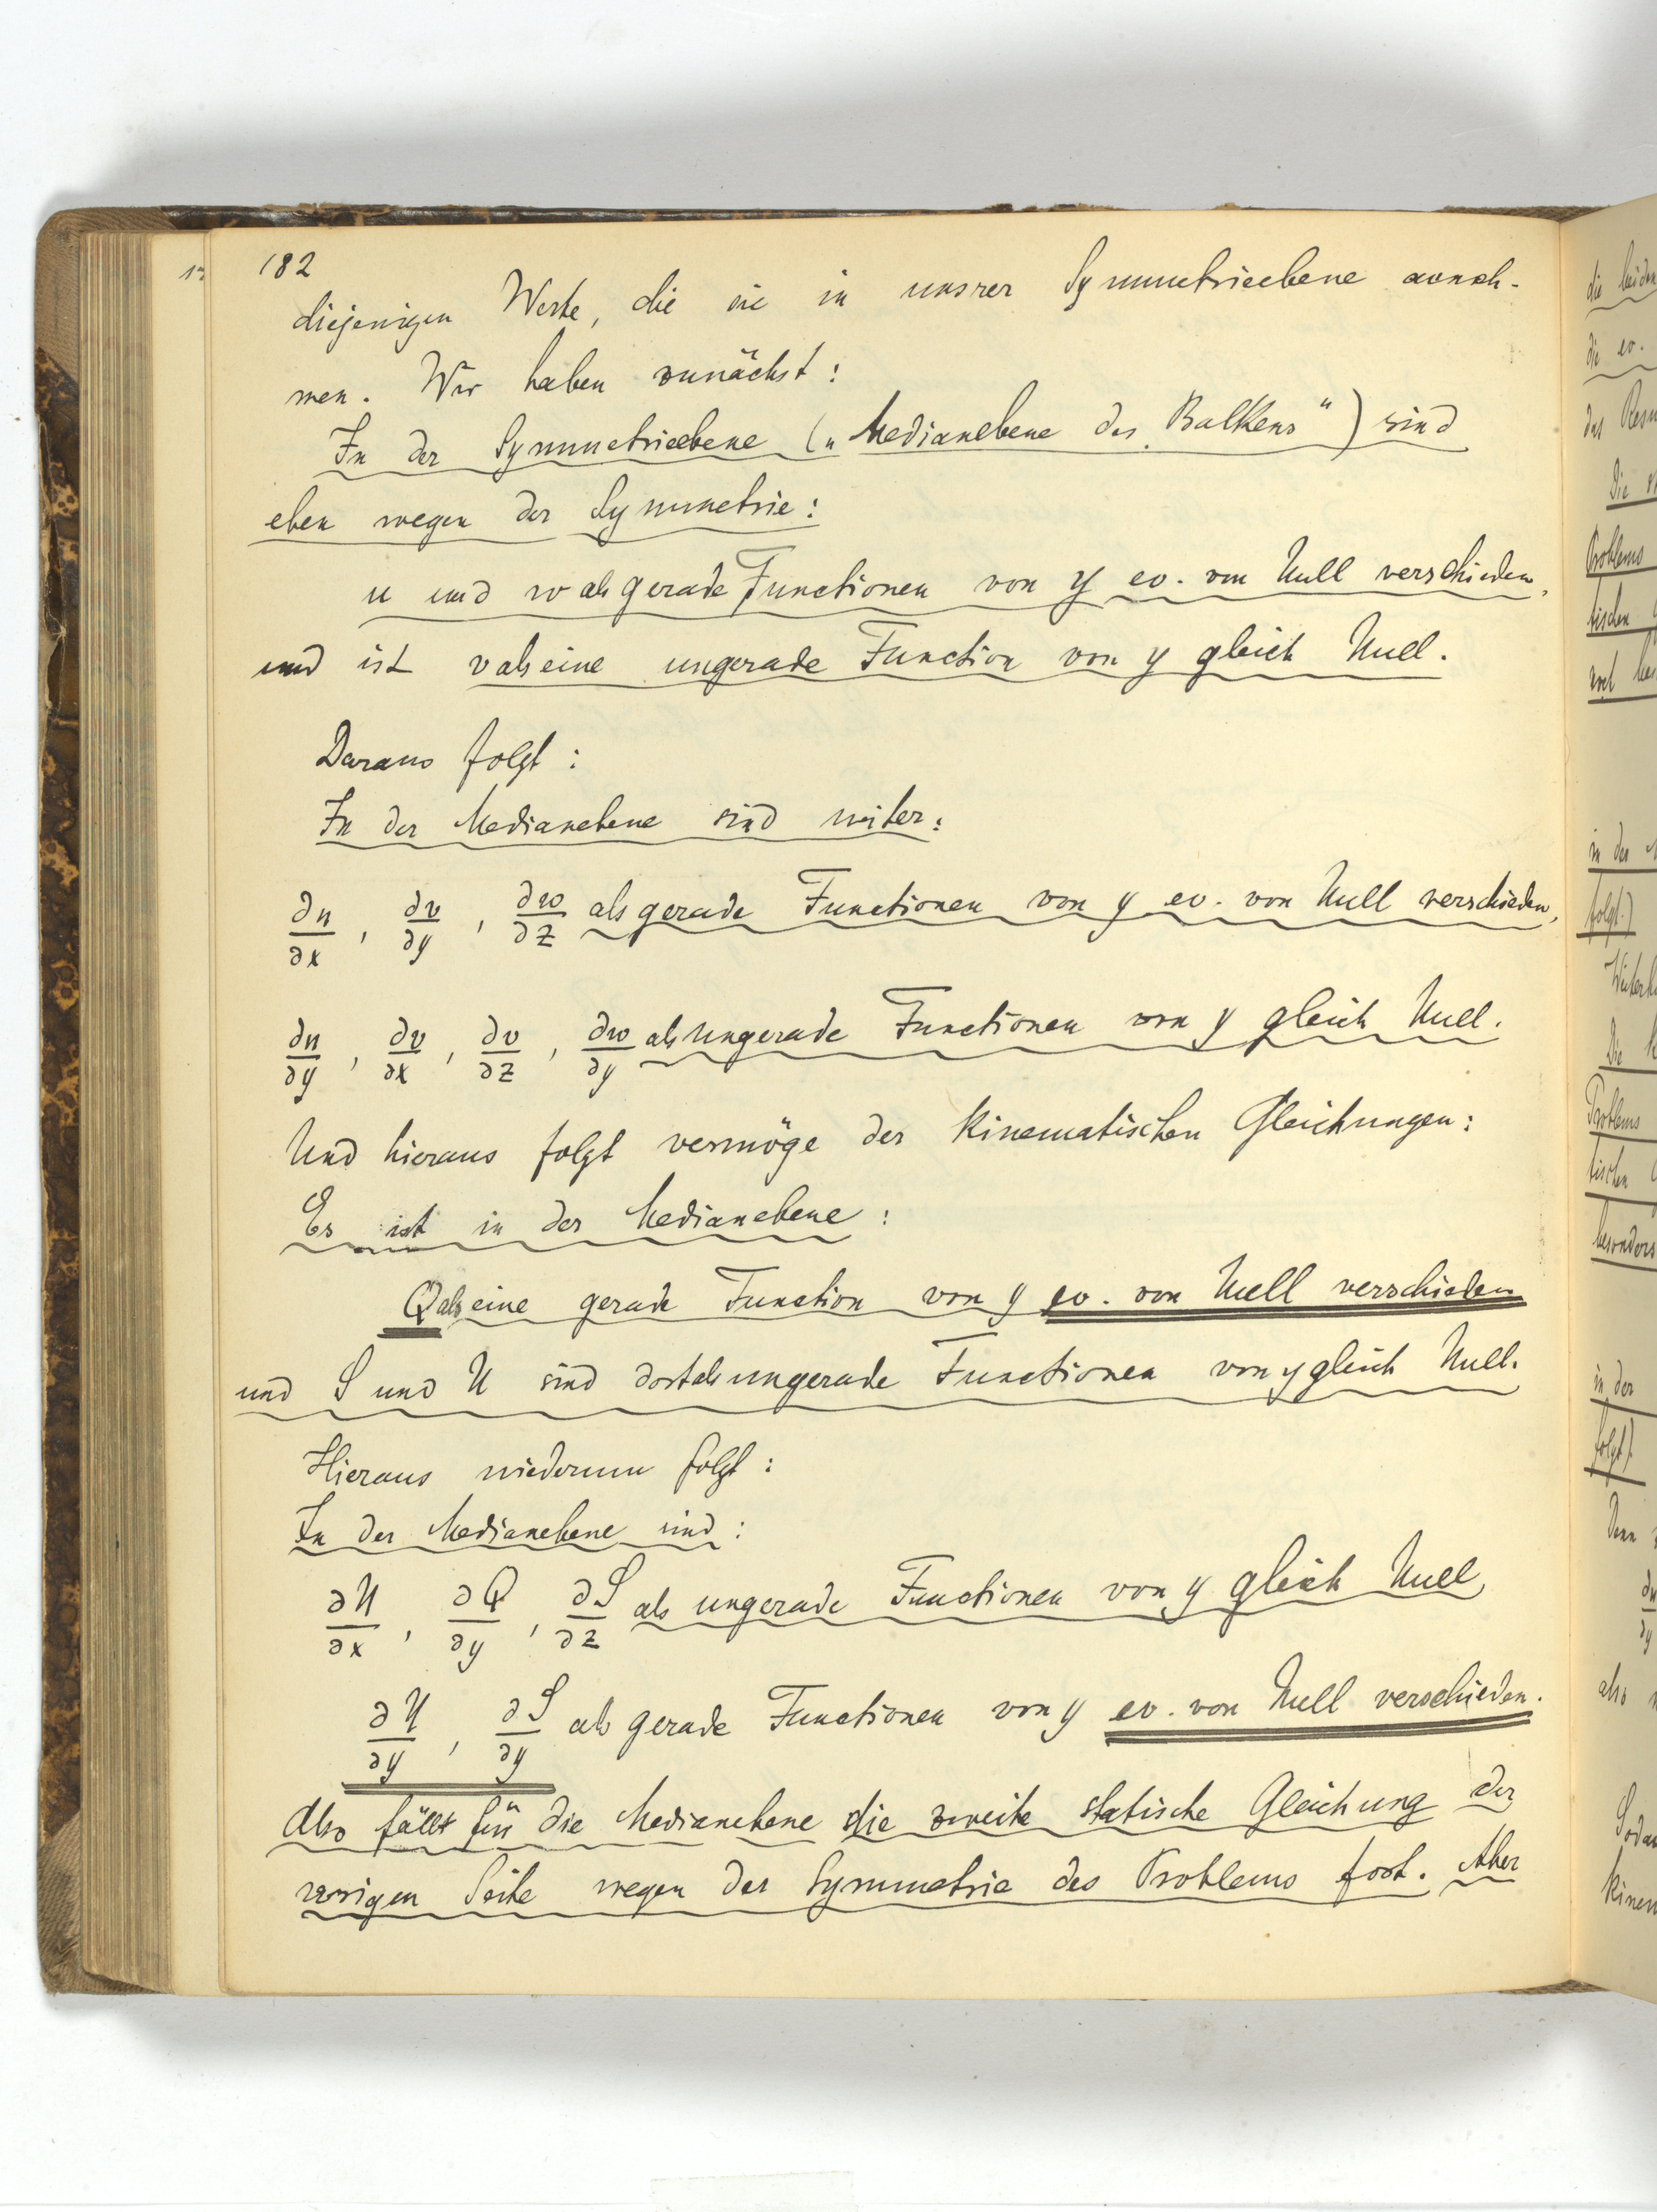 182
diejenigen Werte, die sie in unsrer Symmetrieebene anneh-
men. Wir haben zunächst:
In der Symmetrieebene („Medianebene des Balkens“) sind
eben wegen der Symmetrie:
u und w als gerade Functionen von y ev. von Null verschieden,
und ist v als eine ungerade Function von y gleich Null.
Daraus folgt:
In der Medianebene sind weiter:
∂u/∂x, ∂v/∂y, ∂w/∂z als gerade Functionen von y ev. von Null verschieden,
∂u/∂y, ∂v/∂x, ∂v/∂z, ∂w/∂y als ungerade Functionen von y gleich Null.
Und hieraus folgt vermöge der kinematischen Gleichungen:
Es ist in der Medianebene:
Q als eine gerade Function von y ev. von Null verschieden
und S und U sind dort als ungerade Functionen von y gleich Null.
Hieraus wiederum folgt:
In der Medianebene sind:
∂U/∂x, ∂Q/∂y, ∂S/∂z als ungerade Functionen von y gleich Null
∂U/∂y, ∂S/∂y als gerade Functionen von y ev. von Null verschieden.
Also fällt für die Medianebene die zweite statische Gleichung der
vorigen Seite wegen der Symmetrie des Problems fort. Aber
die beiden
die ev.
Problems
tischen
in der
folgt)
Die
Problems
tischen
besonders
in der
folgt)
Denn
∂u/∂y
also